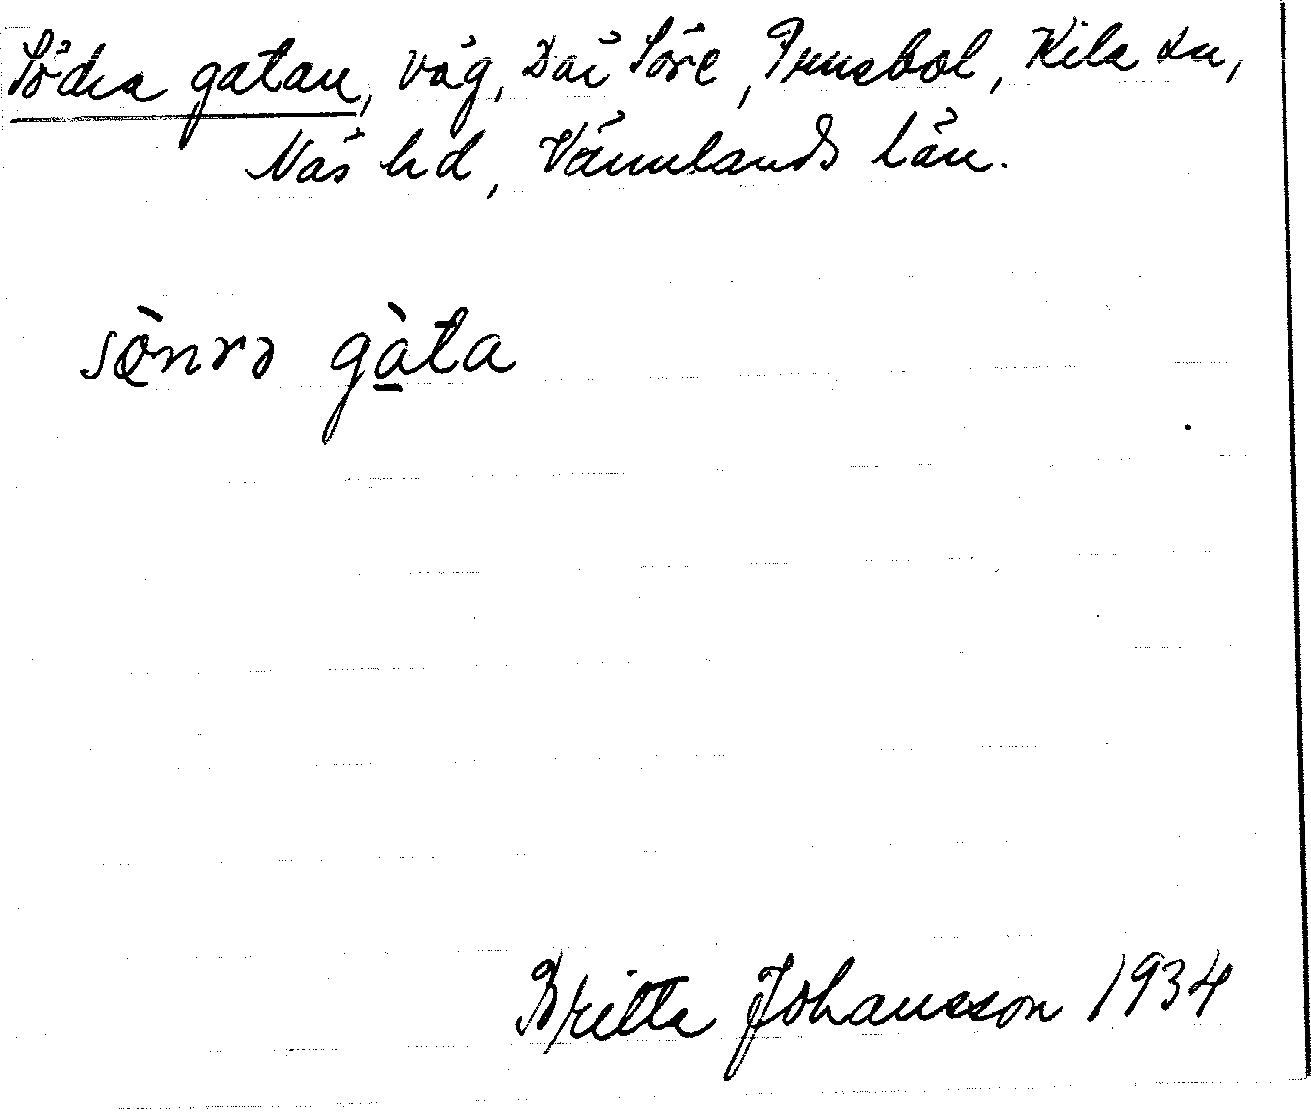 Södra gatan, väg, Dal Söre, Prusbol, Kila sn,
Näs hd, Värmlands län.
sö̀nrə gàta
Britta Johansson 1934